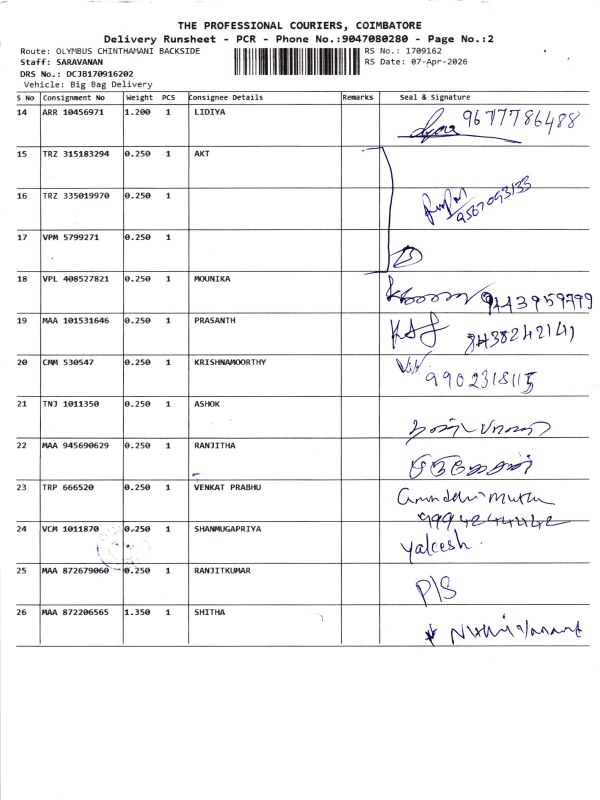 THE PROFESSIONAL COURIERS, COIMBATORE
Delivery Runsheet - PCR - Phone No.:9047080280 - Page No.:2
Route: OLYMBUS CHINTHAMANI BACKSIDE RS No.: 1709162
Staff: SARAVANAN RS Date: 07-Apr-2026
DRS No.: DCJB170916202
Vehicle: Big Bag Delivery
S No Consignment No Weight PCS Consignee Details Remarks Seal & Signature
14 ARR 10456971 1.200 1 LIDIYA 9677786488
15 TRZ 315183294 0.250 1 AKT
16 TRZ 335019970 0.250 1
17 VPM 5799271 0.250 1
18 VPL 408527821 0.250 1 MOUNIKA 9443959799
19 MAA 101531646 0.250 1 PRASANTH 8438242141
20 CMM 530547 0.250 1 KRISHNAMOORTHY 9902318115
21 TNJ 1011350 0.250 1 ASHOK
22 MAA 945690629 0.250 1 RANJITHA
23 TRP 666520 0.250 1 VENKAT PRABHU
24 VCM 1011870 0.250 1 SHANMUGAPRIYA
25 MAA 872679060 0.250 1 RANJITKUMAR P/S
26 MAA 872206565 1.350 1 SHITHA